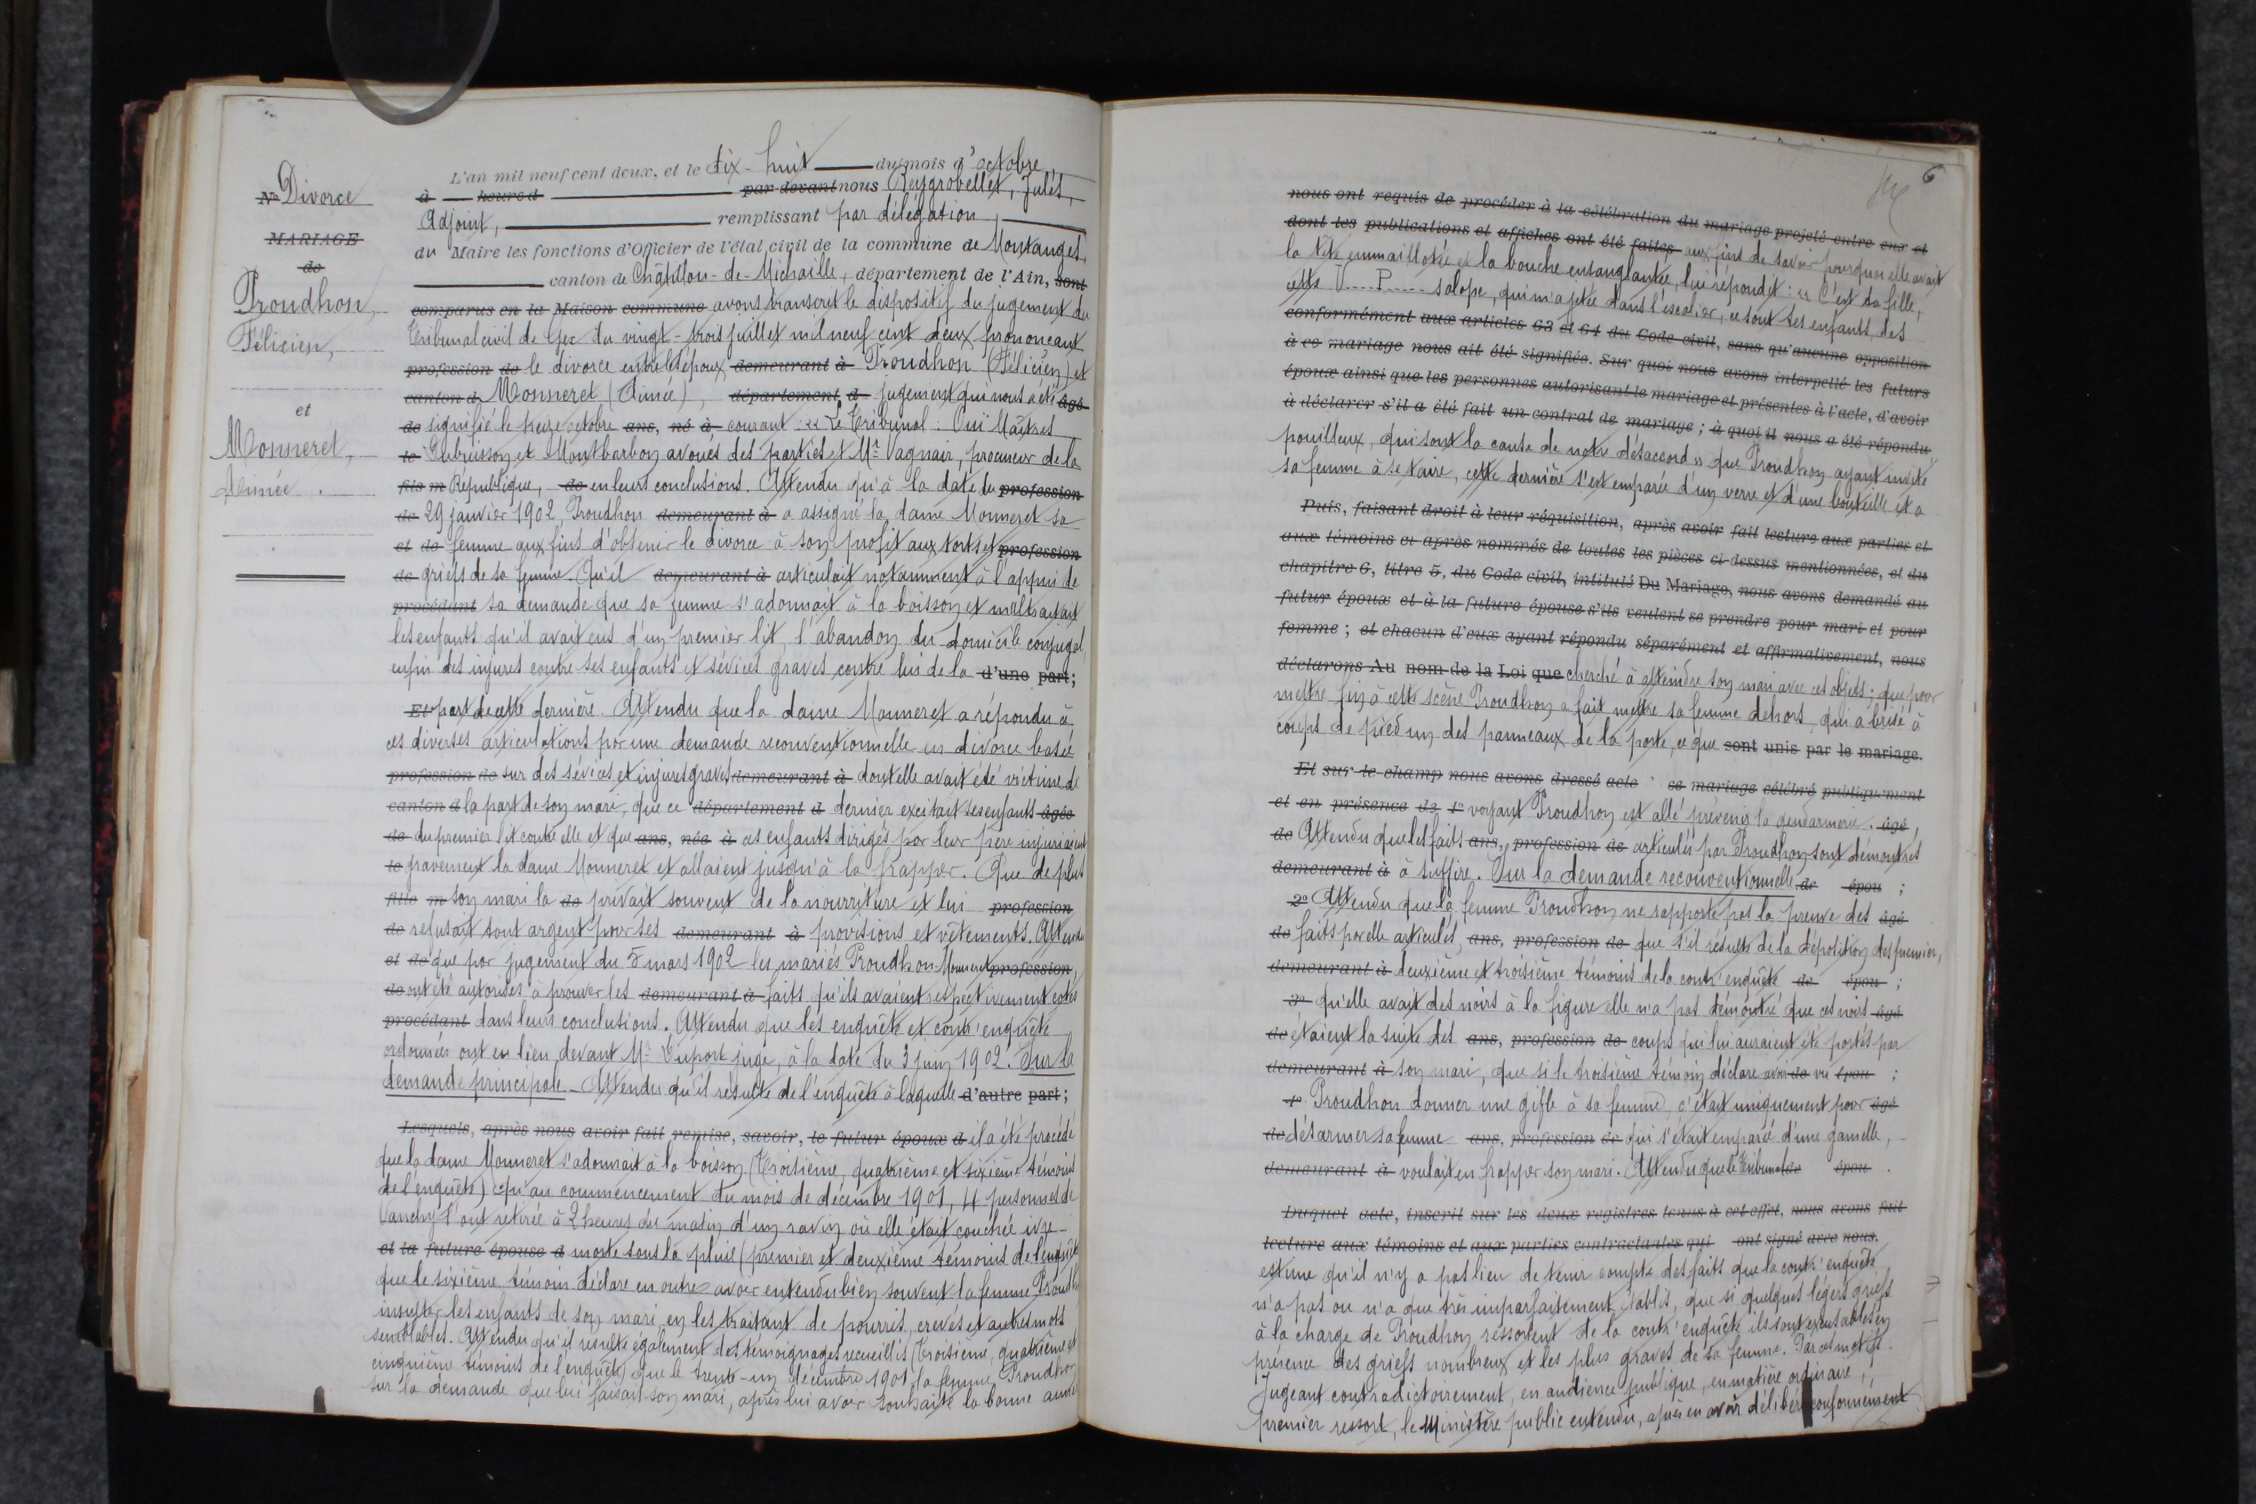 No Divorce
MARIAGE
de
Proudhon,
Félicien,
et
Monneret,
Aimée.
L'an mil neuf cent deux, et le dix-huit du mois d'octobre
à heures d par devant nous Reygrobellet, Jules,
Adjoint, remplissant par délégation,
du Maire les fonctions d'Officier de l'état civil de la commune de Montanges,
canton de Châtillon-de-Michaille, département de l'Ain, sont
comparus en la Maison commune avons transcrit le dispositif du jugement du
Tribunal civil de Gex du vingt-trois juillet mil neuf cent deux prononçant
profession de le divorce entre les époux demeurant à Proudhon (Félicien) et
canton d Monneret (Aimée), département d jugement qui nous a été âgé
de signifié le treize octobre ans, né à courant : « Le Tribunal : Ouï Maîtres
le Dubuisson et Montbarbon avoués des parties et Mr Vagnair, procureur de la
fils m République, de en leurs conclusions. Attendu qu'à la date du profession
de 29 janvier 1902, Proudhon demeurant à a assigné la dame Monneret sa
et de femme aux fins d'obtenir le divorce à son profit aux torts et profession
de griefs de sa femme. Qu'il demeurant à articulait notamment à l'appui de
procédant sa demande que sa femme s'adonnait à la boisson et maltraitait
les enfants qu'il avait eus d'un premier lit, l'abandon du domicile conjugal,
enfin des injures contre ses enfants et sévices graves contre lui de la d'une part;
Et part de cette dernière. Attendu que la dame Monneret a répondu à
ces diverses articulations par une demande reconventionnelle en divorce basée
profession de sur des sévices et injures graves demeurant à dont elle avait été victime de
canton d la part de son mari, que ce département d dernier excitait ses enfants âgée
de du premier lit contre elle et que ans, née à ces enfants dirigés par leur père injuriaient
le gravement la dame Monneret et allaient jusqu'à la frapper. Que de plus
fille m son mari la de privait souvent de la nourriture et lui profession
de refusait tout argent pour ses demeurant à provisions et vêtements. Attendu
et de que par jugement du 5 mars 1902 les mariés Proudhon-Monneret profession,
de ont été autorisés à prouver les demeurant à faits qu'ils avaient respectivement cotés
procédant dans leurs conclusions. Attendu que les enquête et contr'enquête
ordonnées ont eu lieu devant Mr Duport juge, à la date du 3 juin 1902. Sur la
demande principale – Attendu qu'il résulte de l'enquête à laquelle d'autre part;
Lesquels, après nous avoir fait remise, savoir, le futur époux d il a été procédé
que la dame Monneret s'adonnait à la boisson (Troisième, quatrième et sixième témoins
de l'enquête) qu'au commencement du mois de décembre 1901, 4 personnes de
Vanchy l'ont retirée à 2 heures du matin d'un ravin où elle était couchée ivre-
et la future épouse d morte sous la pluie (premier et deuxième témoins de l'enquête
que le sixième témoin déclare en outre avoir entendu bien souvent la femme Proudh
insulter les enfants de son mari en les traitant de pourris, crevés et autres mots
semblables. Attendu qu'il résulte également des témoignages recueillis (troisième, quatrième et
cinquième témoins de l'enquête) que le trente-un décembre 1901, la femme Proudhon
sur la demande que lui faisait son mari, après lui avoir souhaité la bonne année
6
nous ont requis de procéder à la célébration du mariage projeté entre eux et
dont les publications et affiches ont été faites aux fins de savoir pourquoi elle avait
la tête emmaillotée et la bouche ensanglantée, lui répondit : « C'est ta fille,
cette V.... P..... salope, qui m'a jetée dans l'escalier, ce sont tes enfants, des
conformément aux articles 63 et 64 du Code civil, sans qu'aucune opposition
à ce mariage nous ait été signifiée. Sur quoi nous avons interpellé les futurs
époux ainsi que les personnes autorisant le mariage et présentes à l'acte, d'avoir
à déclarer s'il a été fait un contrat de mariage; à quoi il nous a été répondu
pouilleux, qui sont la cause de notre désaccord » que Proudhon ayant invité
sa femme à se taire, cette dernière s'est emparée d'un verre et d'une bouteille et a
Puis, faisant droit à leur réquisition, après avoir fait lecture aux parties et
aux témoins ci-après nommés de toutes les pièces ci-dessus mentionnées, et du
chapitre 6, titre 5, du Code civil, intitulé Du Mariage, nous avons demandé au
futur époux et à la future épouse s'ils veulent se prendre pour mari et pour
femme; et chacun d'eux ayant répondu séparément et affirmativement, nous
déclarons Au nom de la Loi que cherché à atteindre son mari avec ces objets; que pour
mettre fin à cette scène Proudhon a fait mettre sa femme dehors, qui a brisé à
coups de pied un des panneaux de la porte, ce que sont unis par le mariage.
Et sur-le-champ nous avons dressé acte ce mariage célébré publiquement
et en présence de 1o voyant Proudhon est allé prévenir la gendarmerie. âgé,
de Attendu que les faits ans, profession de articulés par Proudhon sont démontrés
demeurant à à suffire. Sur la demande reconventionnelle de épou ;
2o Attendu que la femme Proudhon ne rapporte pas la preuve des âgé
de faits par elle articulés, ans, profession de que s'il résulte de la déposition des premier,
demeurant à deuxième et troisième témoins de la contr'enquête de épou ;
3o qu'elle avait des noirs à la figure elle n'a pas démontré que ces noirs âgé
de étaient la suite des ans, profession de coups qui lui auraient été portés par
demeurant à son mari, que si le troisième témoin déclare avoir de vu épou ;
4o Proudhon donner une gifle à sa femme, c'était uniquement pour âgé
de désarmer sa femme ans, profession de qui s'était emparée d'une gamelle,
demeurant à voulait en frapper son mari. Attendu que le Tribunal de épou .
Duquel acte, inscrit sur les deux registres tenus à cet effet, nous avons fait
lecture aux témoins et aux parties contractantes qui ont signé avec nous.
estime qu'il n'y a pas lieu de tenir compte des faits que la contr'enquête
n'a pas ou n'a que très imparfaitement établis, que si quelques légers griefs
à la charge de Proudhon ressortent de la contr'enquête ils sont excusables en
présence des griefs nombreux et les plus graves de sa femme. Par ces motifs.
Jugeant contradictoirement, en audience publique, en matière ordinaire,
premier ressort, le Ministère public entendu, après en avoir délibéré conformément